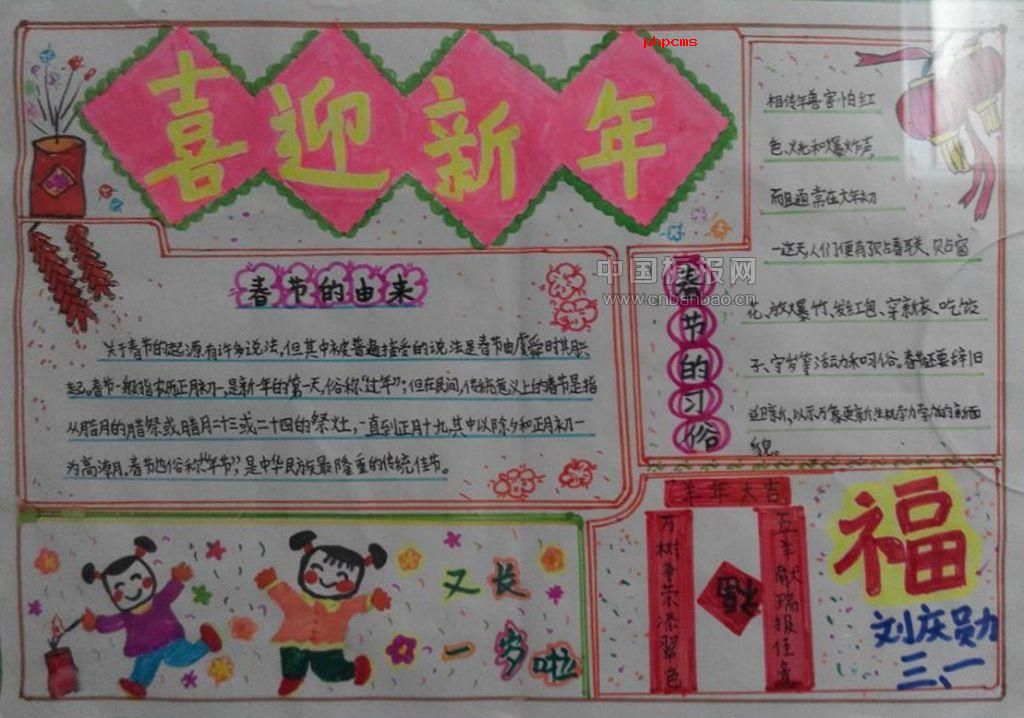 喜迎新年
phpcms
相传年兽害怕红
色、火光和爆炸声,
而且通常在大年初
一这天,人们便有了贴春联、贴窗
花、放爆竹、发红包、穿新衣、吃饺
子、守岁等活动和习俗。春节还要辞旧
迎新,以示万象更新生机
貌。
春节的习俗
中国板报网
www.cnbanbao.cn
春节的由来
关于春节的起源有许多说法,但其中被普遍接受的说法是春节由虞舜时其月兴
起。春节一般指农历正月初一,是新一年的第一天,俗称“过年”;但在民间,传统意义上的春节是指
从腊月的腊祭或腊月二十三或二十四的祭灶,一直到正月十九其中以除夕和正月初一
为高潮月。春节也俗称“年节”,是中华民族最隆重的传统佳节。
又长
一岁啦
羊年大吉
五羊献瑞报佳音
万树争荣添翠色
福
福
刘庆勋
三、一